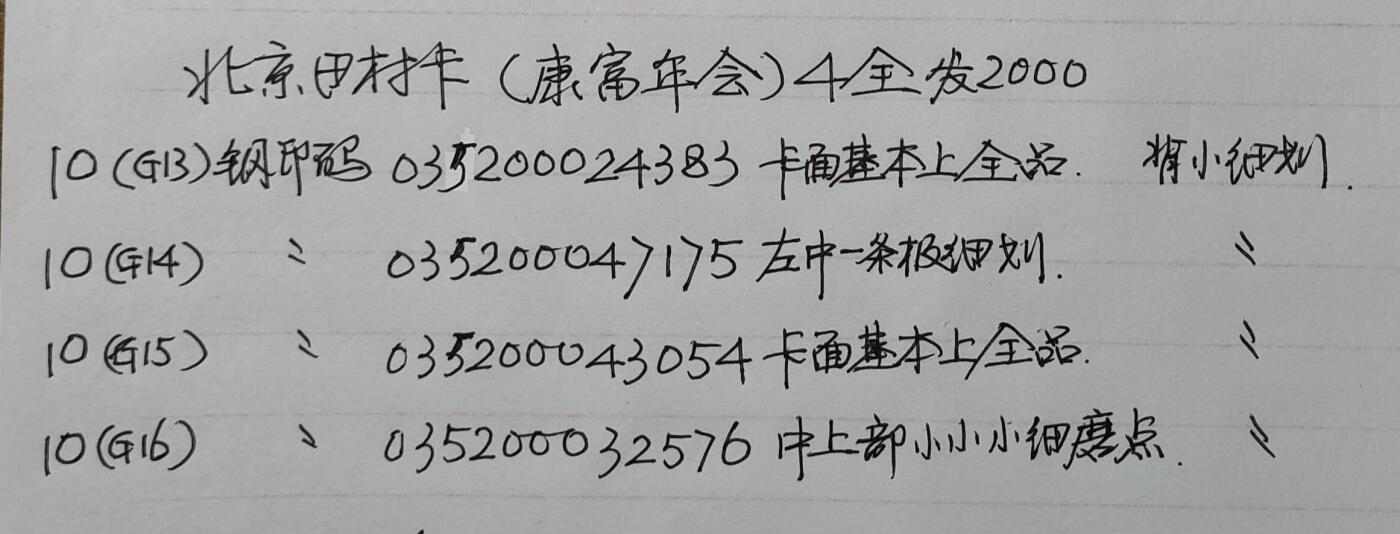 北京田村卡(康富年会)4全发2000
10(G13)钢印码 035200024383 卡面基本上全品. 背小细划.
10(G14) 〃 035200047175 左中一条极细划. 〃
10(G15) 〃 035200043054 卡面基本上全品. 〃
10(G16) 〃 035200032576 中上部小小小细磨点. 〃